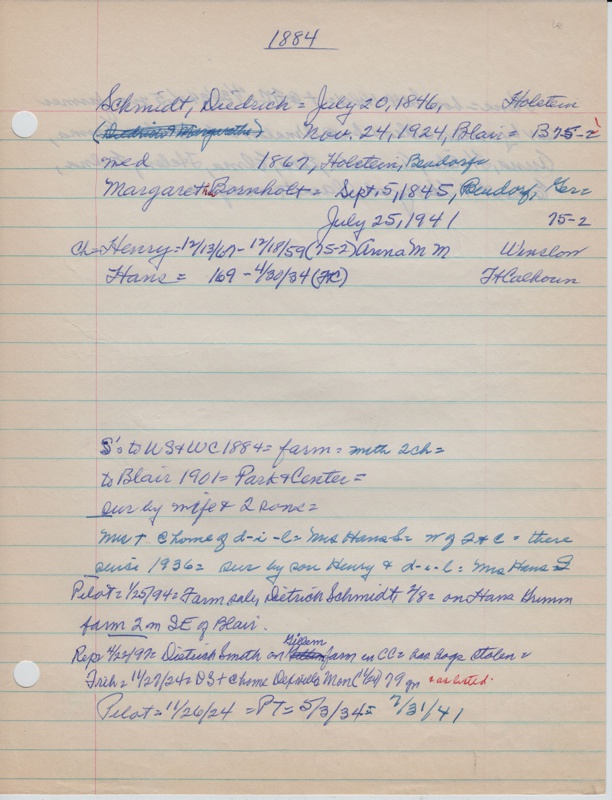 1884
Schmidt, Diedrich = July 20, 1846, Holstein
Nov. 24, 1924, Blair = B 75-2
med 1867, Holstein, Besdorf=
Margaretha Bornholt = Sept. 5, 1845, Besdorf, Ger=
July 25, 1941 75-2
Ch= Henry = 12/13/67 - 12/18/59 (75-2) Anna M M Winslow
Hans = 169 - 4/30/34 (FtC) FtCalhoun
S's to US & WC 1884 = farm = with 2ch =
to Blair 1901 = Park & Center =
sur by wife & 2 sons =
Mrs + @ home of d-i-l = Mrs Hans S = w of Ft C = there
since 1936 = sur by son Henry & d-i-l = Mrs Hans S
Pilot = 1/25/94 = Farm sale, Dietrich Schmidt 2/8 = on Hans Grimm
farm 2 m SE of Blair.
Rep= 4/22/97 = Dietrich Smith on farm in CC = has hogs stolen =
Trib = 11/27/24 = DS + @ home Mon (11/24) 79 yr + as listed.
Pilot = 11/26/24 = PT = 5/3/34 = 7/31/41